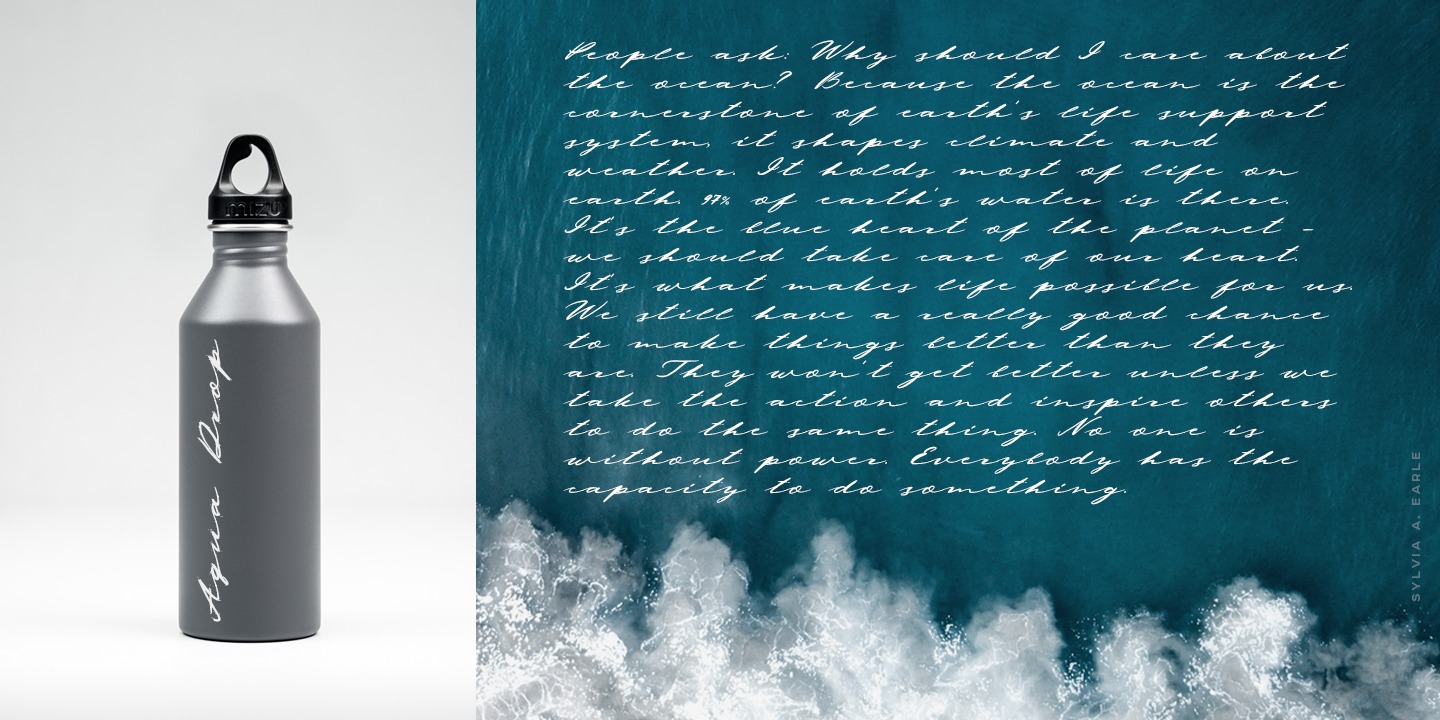 mizu
Aqua Drop
People ask: Why should I care about
the ocean? Because the ocean is the
cornerstone of earth's life support
system, it shapes climate and
weather. It holds most of life on
earth. 97% of earth's water is there.
It's the blue heart of the planet -
we should take care of our heart.
It's what makes life possible for us.
We still have a really good chance
to make things better than they
are. They won't get better unless we
take the action and inspire others
to do the same thing. No one is
without power. Everybody has the
capacity to do something.
SYLVIA A. EARLE